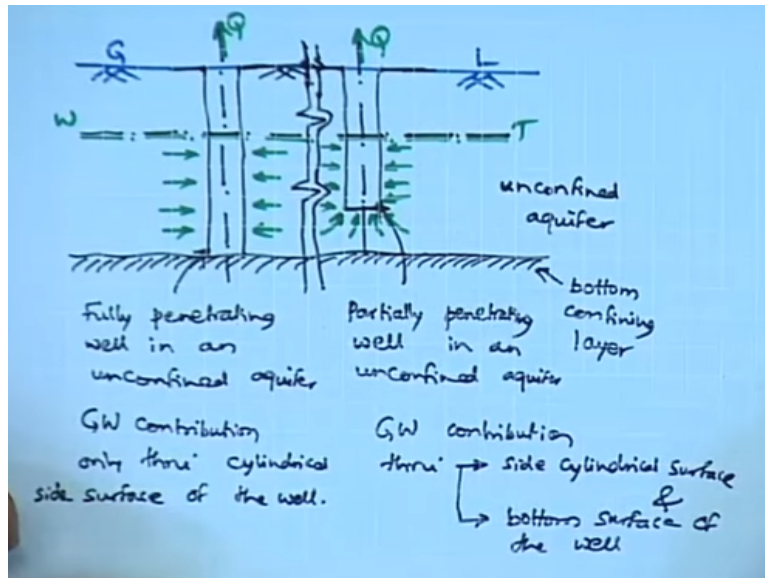 Q
Q
G
L
W
T
unconfined
aquifer
bottom
confining
layer
Fully penetrating
well in an
unconfined aquifer
Partially penetrating
well in an
unconfined aquifer
GW contribution
only thru' cylindrical
side surface of the well.
GW contribution
thru' side cylindrical surface
&
bottom surface of
the well